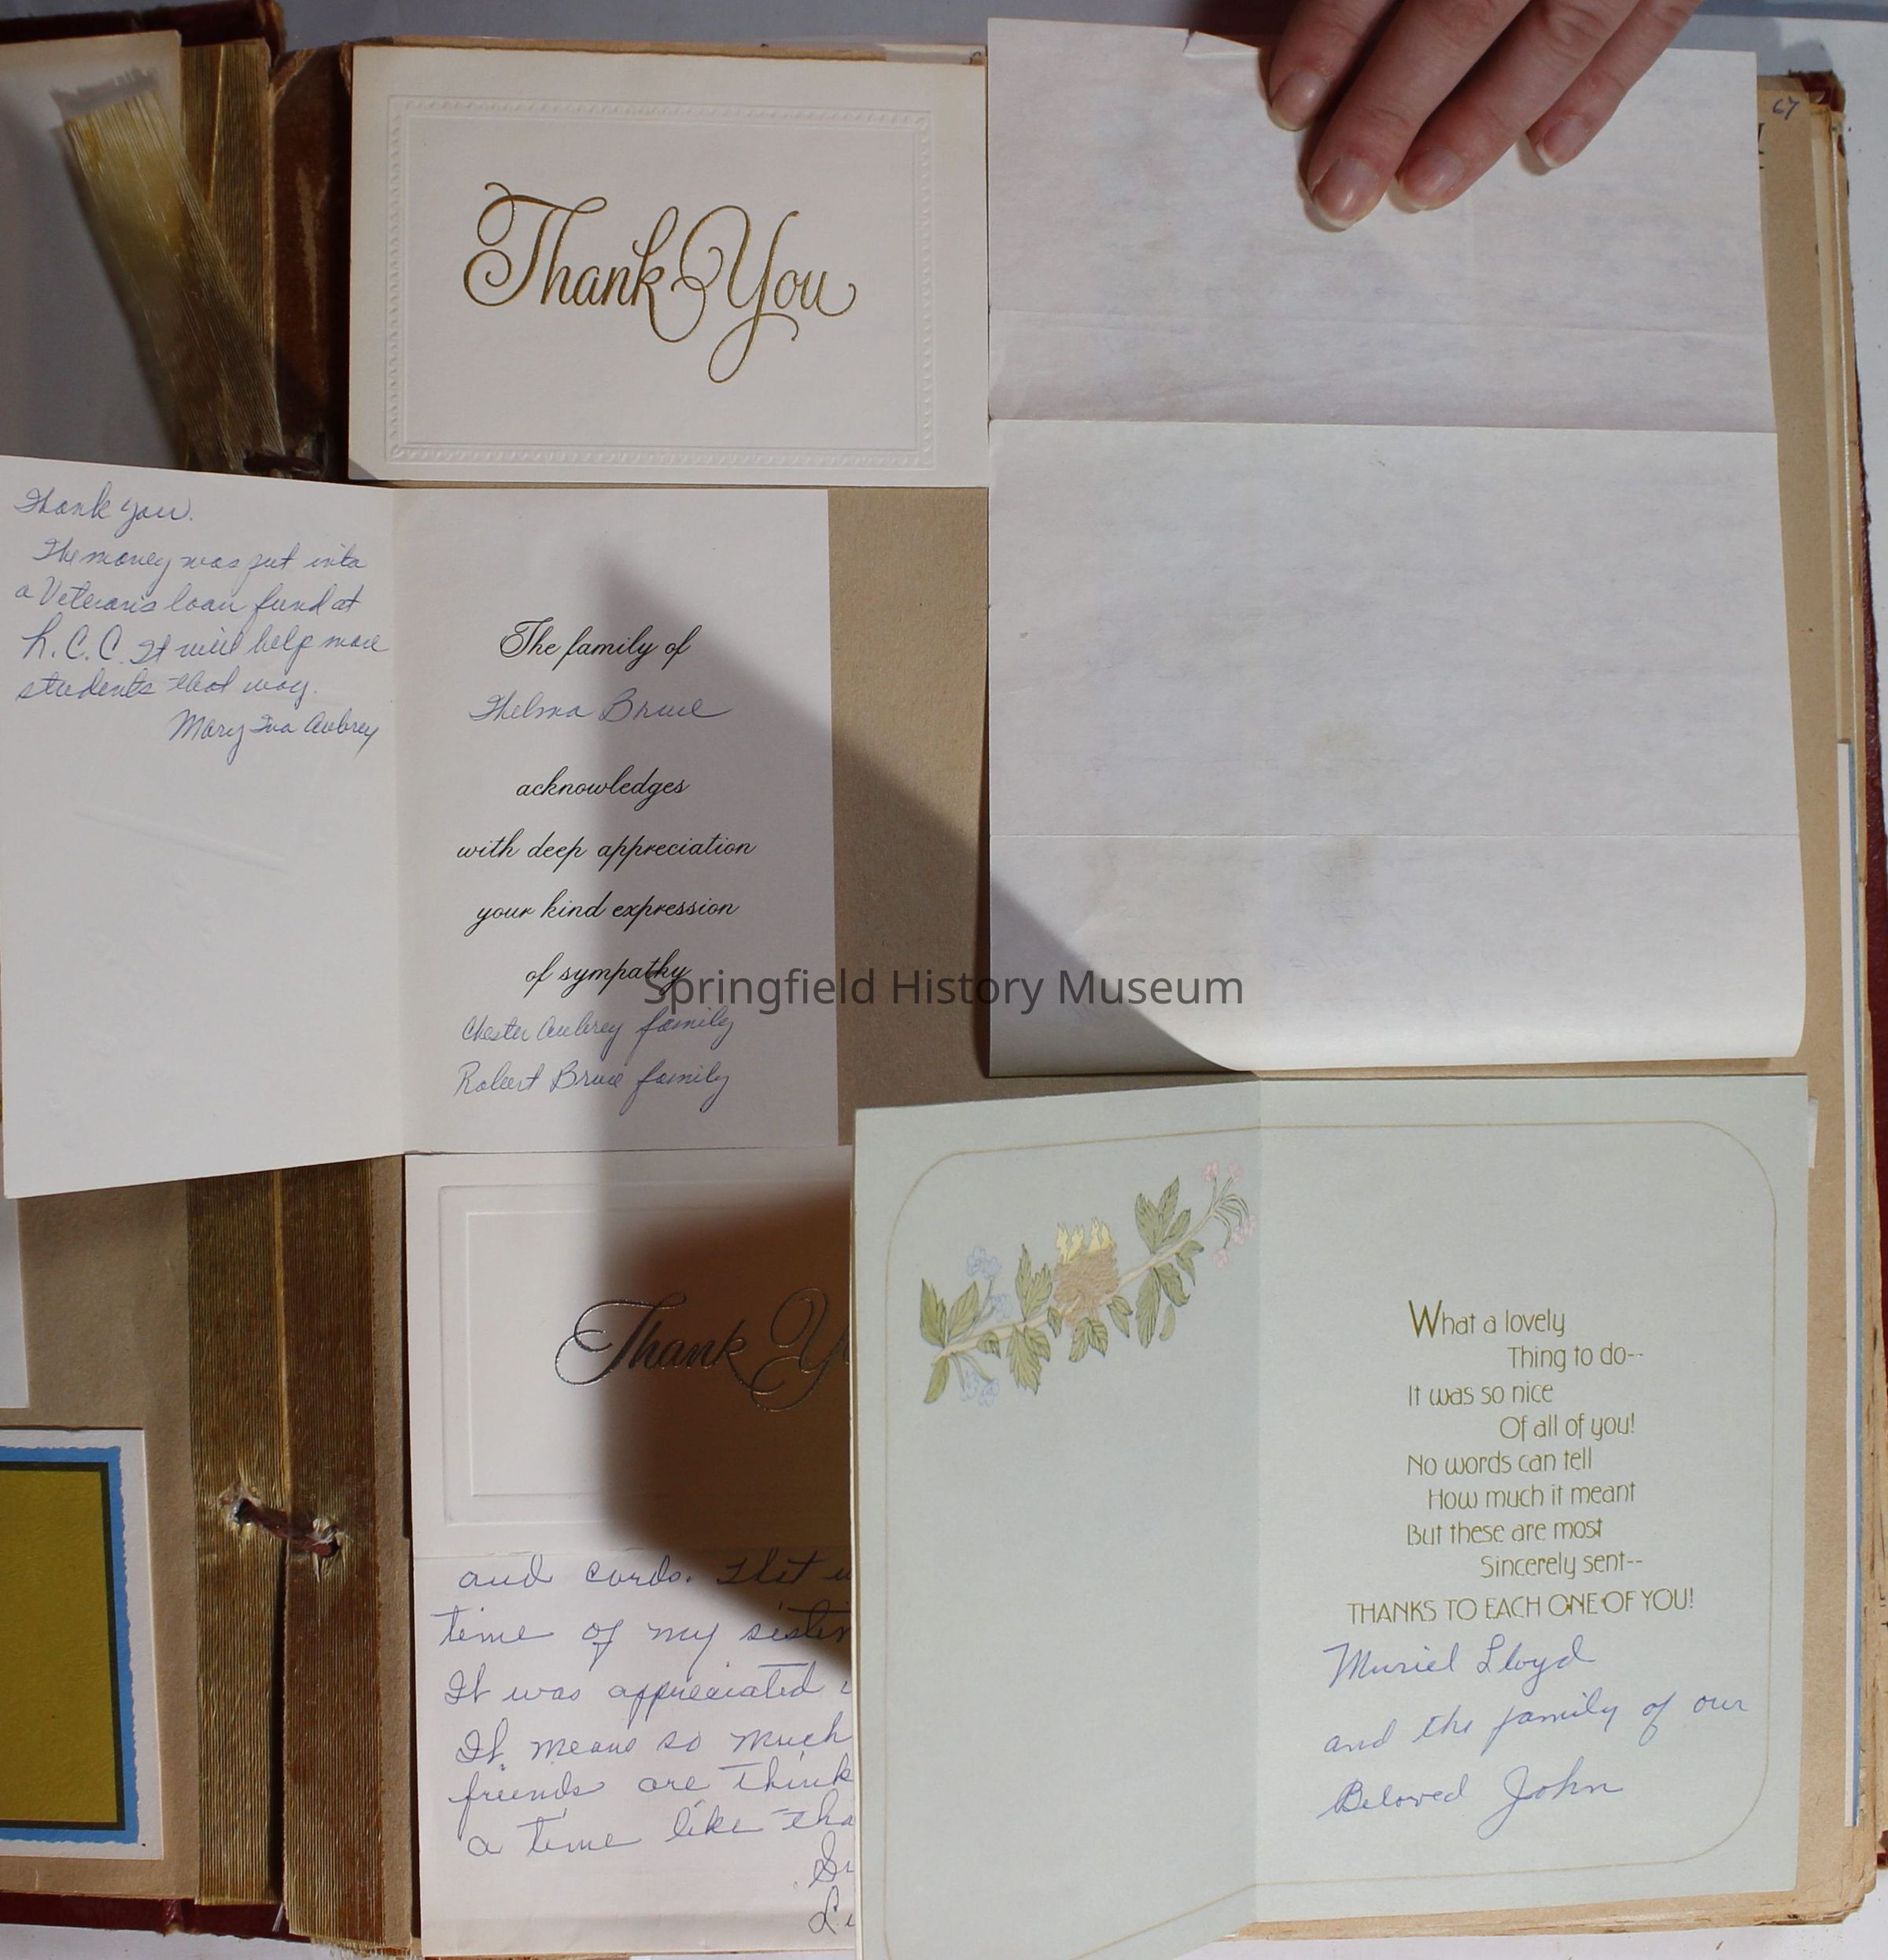 67
Thank You
Thank you.
The money was put into
a Veterans loan fund at
L.C.C. It will help more
students that way.
Mary Iva Aubrey
The family of
Thelma Bruce
acknowledges
with deep appreciation
your kind expression
of sympathy
Chester Aubrey family
Robert Bruce family
Springfield History Museum
Thank Y
and cards.
time of my sister
It was appreciated
It means so much
friends are think
a time like tha
What a lovely
Thing to do--
It was so nice
Of all of you!
No words can tell
How much it meant
But these are most
Sincerely sent--
THANKS TO EACH ONE OF YOU!
Muriel Lloyd
and the family of our
Beloved John